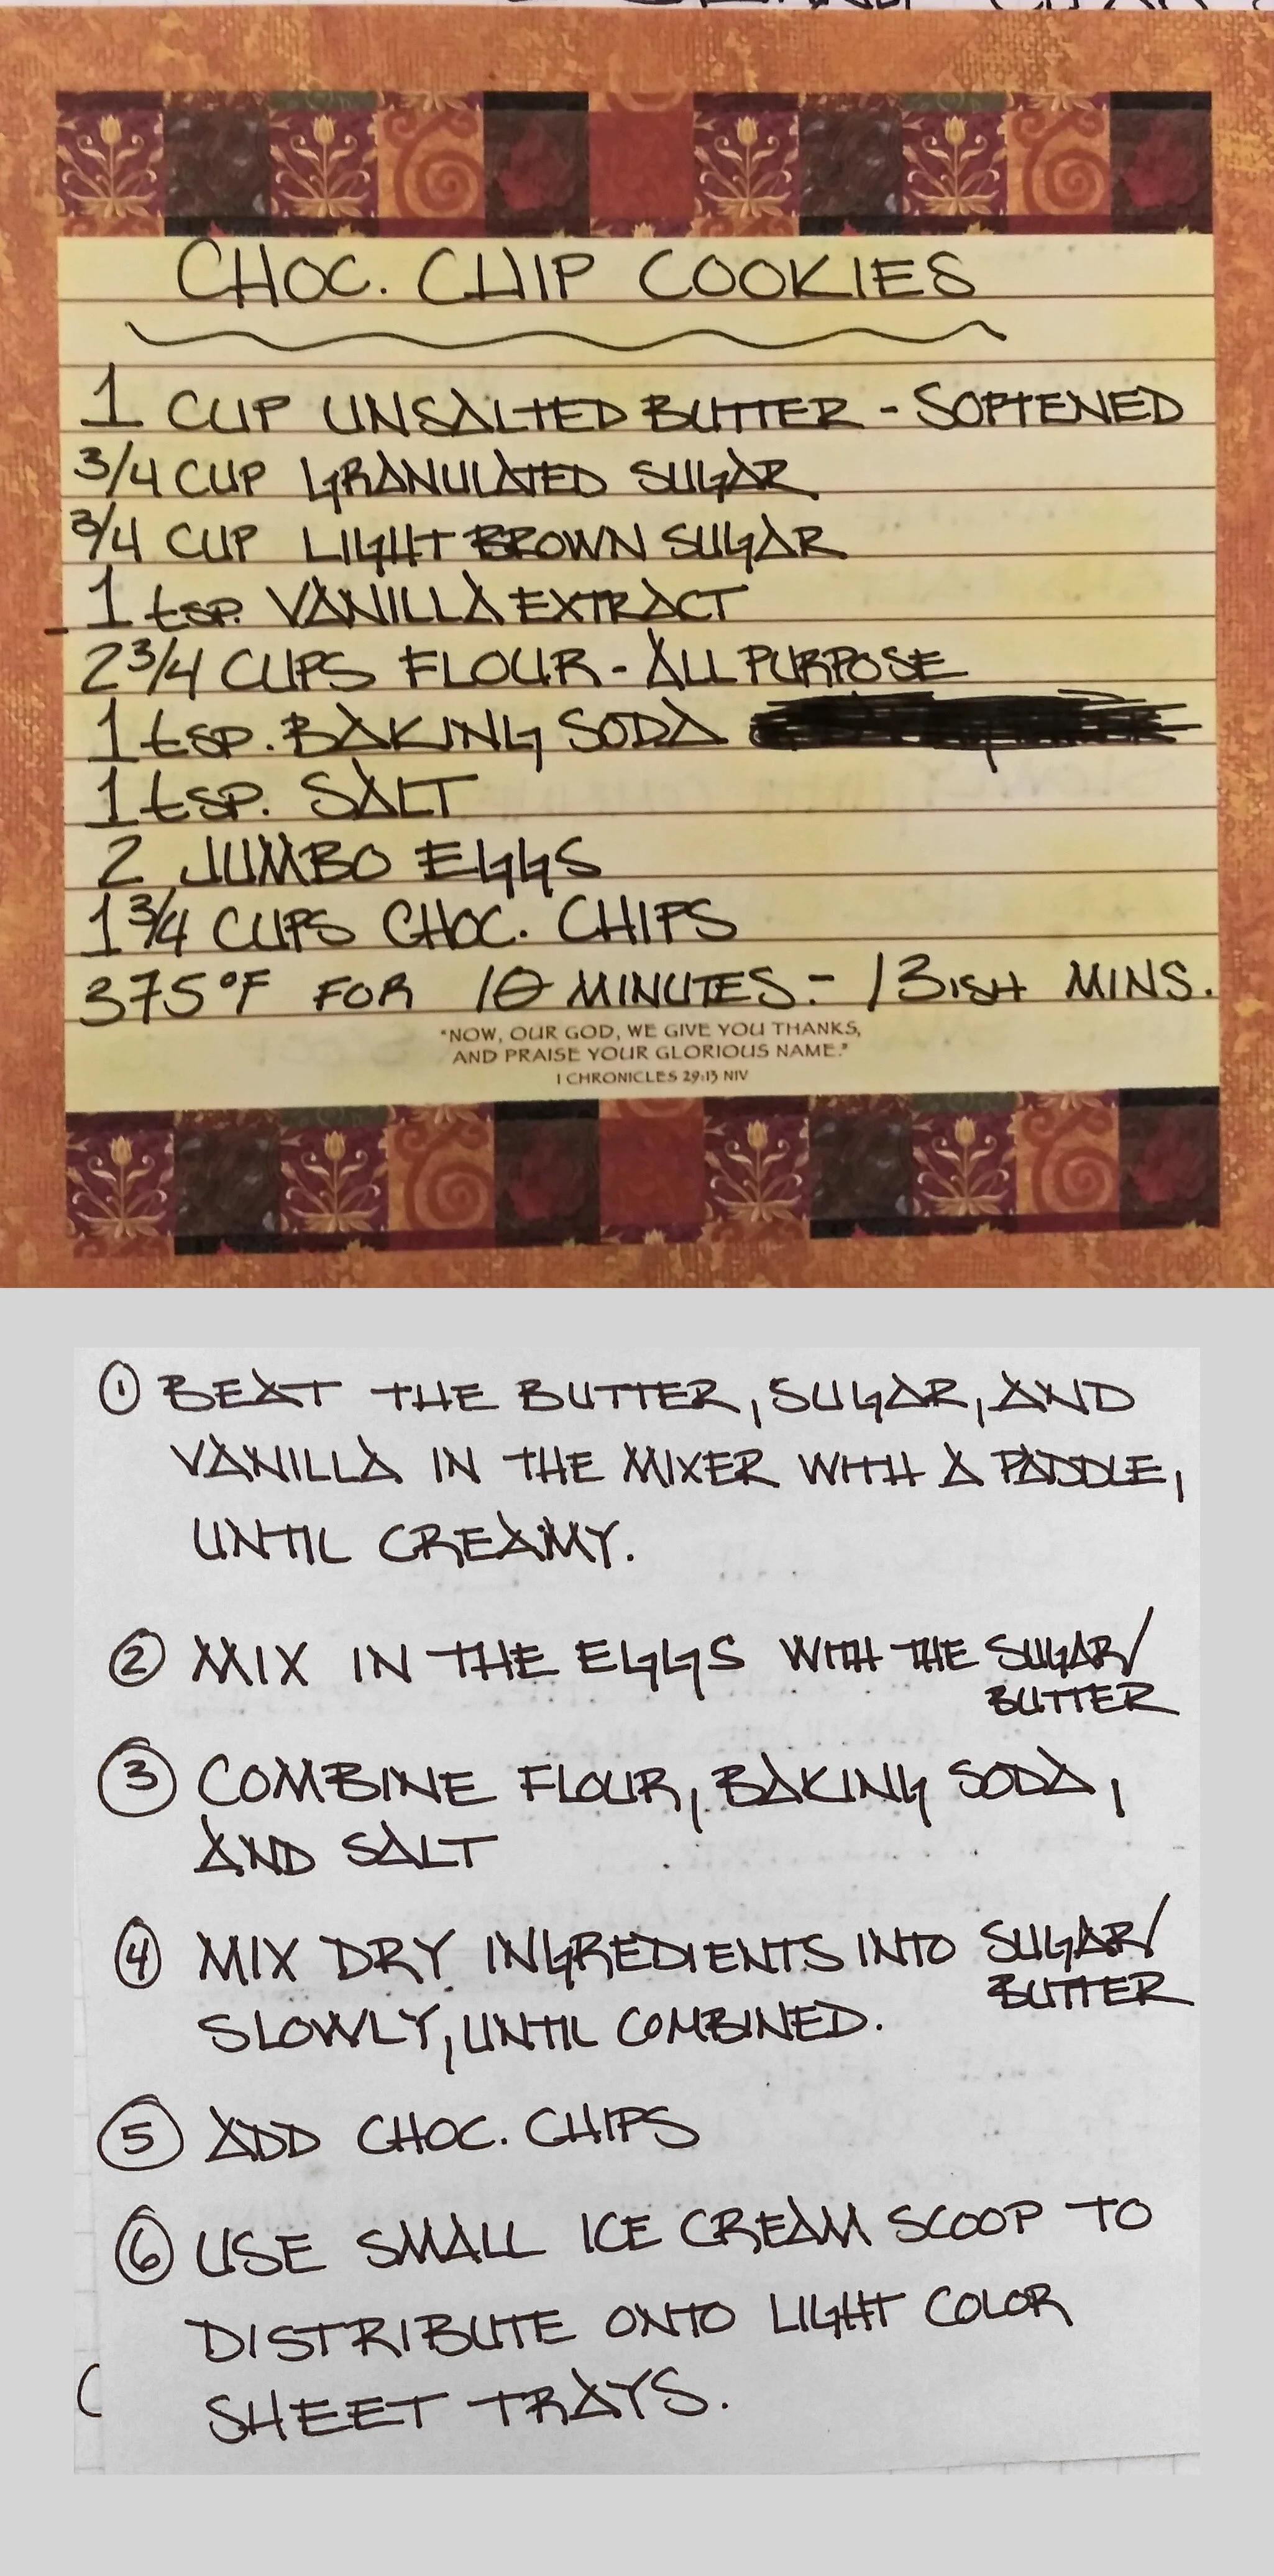 CHOC. CHIP COOKIES
1 CUP UNSALTED BUTTER - SOFTENED
3/4 CUP GRANULATED SUGAR
3/4 CUP LIGHT BROWN SUGAR
1 tsp. VANILLA EXTRACT
2 3/4 CUPS FLOUR - ALL PURPOSE
1 tsp. BAKING SODA
1 tsp. SALT
2 JUMBO EGGS
1 3/4 CUPS CHOC. CHIPS
375°F FOR 10 MINUTES. - 13ISH MINS.
"NOW, OUR GOD, WE GIVE YOU THANKS,
AND PRAISE YOUR GLORIOUS NAME."
1 CHRONICLES 29:13 NIV
① BEAT THE BUTTER, SUGAR, AND
VANILLA IN THE MIXER WITH A PADDLE,
UNTIL CREAMY.
② MIX IN THE EGGS WITH THE SUGAR/
BUTTER
③ COMBINE FLOUR, BAKING SODA,
AND SALT
④ MIX DRY INGREDIENTS INTO SUGAR/
BUTTER
SLOWLY, UNTIL COMBINED.
⑤ ADD CHOC. CHIPS
⑥ USE SMALL ICE CREAM SCOOP TO
DISTRIBUTE ONTO LIGHT COLOR
SHEET TRAYS.